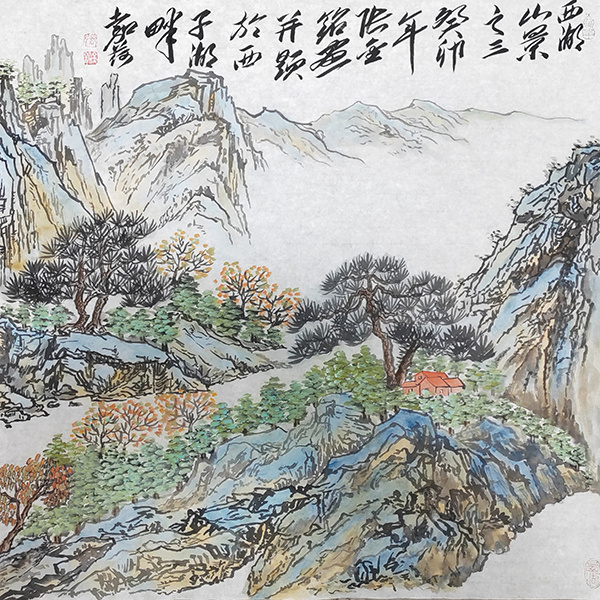 西湖
山景
之三
癸卯
年
张金
画
并题
於西
子湖
畔